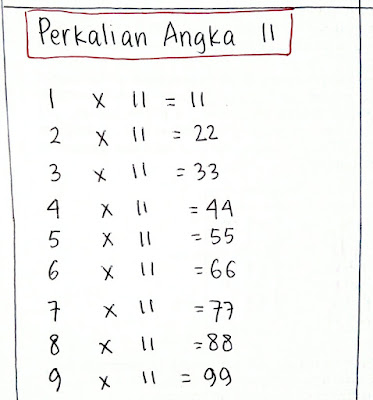 Perkalian Angka 11
1 x 11 = 11
2 x 11 = 22
3 x 11 = 33
4 x 11 = 44
5 x 11 = 55
6 x 11 = 66
7 x 11 = 77
8 x 11 = 88
9 x 11 = 99